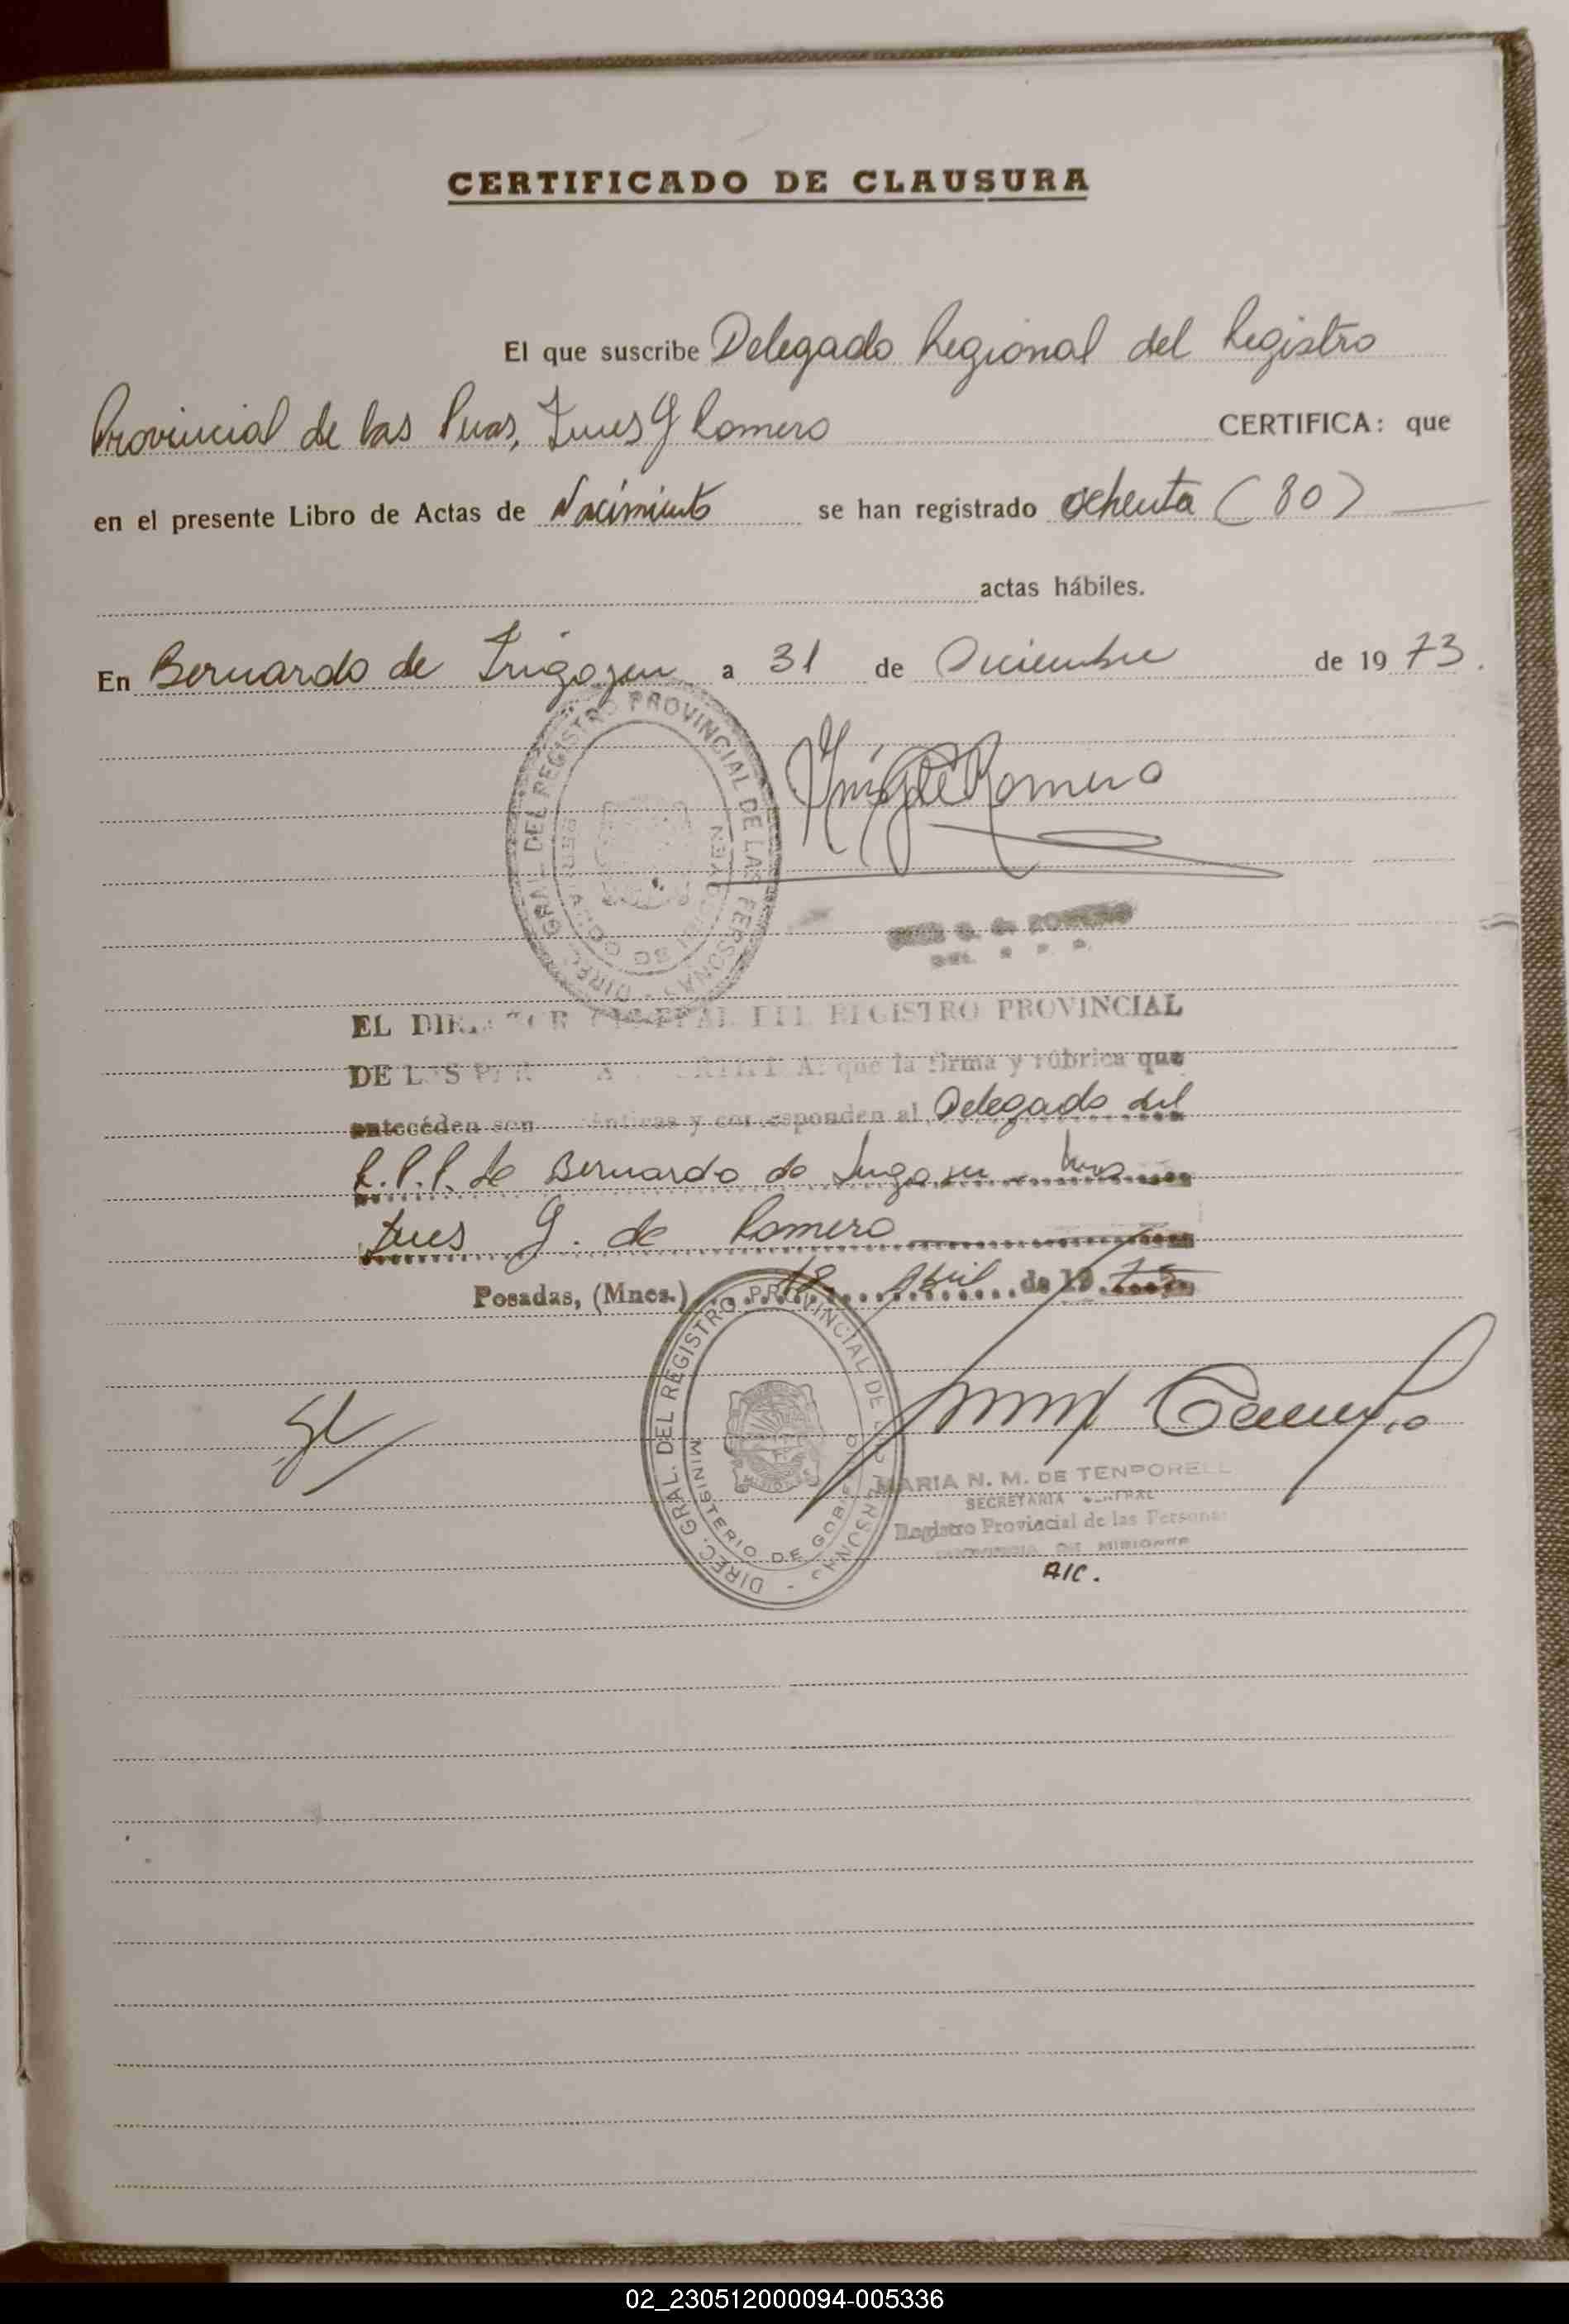 CERTIFICADO DE CLAUSURA
El que suscribe Delegado Regional del Registro
Provincial de las Pnas, Ines G Romero CERTIFICA: que
en el presente Libro de Actas de Nacimiento se han registrado ochenta (80)
actas hábiles.
En Bernardo de Irigoyen a 31 de Diciembre de 1973.
DIREC. GRAL. DEL REGISTRO PROVINCIAL DE LAS PERSONAS
G. de ROMERO
EL DIRECTOR GENERAL DEL REGISTRO PROVINCIAL
DE LAS que la firma y rúbrica que
anteceden son auténticas y corresponden al Delegado del
R.P.P. de Bernardo de Irigoyen
Ines G. de Romero
Posadas, (Mnes.) 18 Abril de 19 75
DIREC. GRAL. DEL REGISTRO PROVINCIAL DE LAS PERSONAS
MINISTERIO DE GOBIERNO
MARIA N. M. DE TENPORELL
SECRETARIA GENERAL
Registro Provincial de las Personas
PROVINCIA DE MISIONES
A/C.
02_230512000094-005336